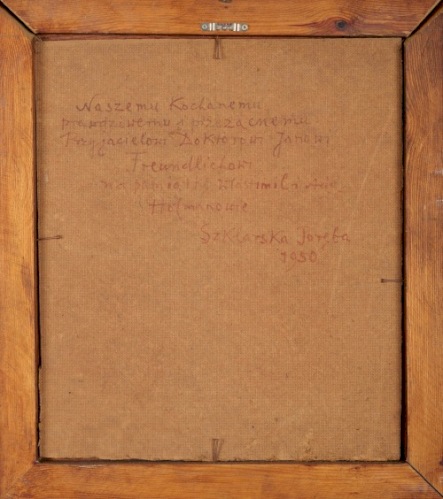 Naszemu Kochanemu,
prawdziwemu i przezacnemu
Przyjacielowi Doktorowi Janowi
Freundlichowi
na pamiątkę
Hofmanowie
Szklarska Poręba
1950